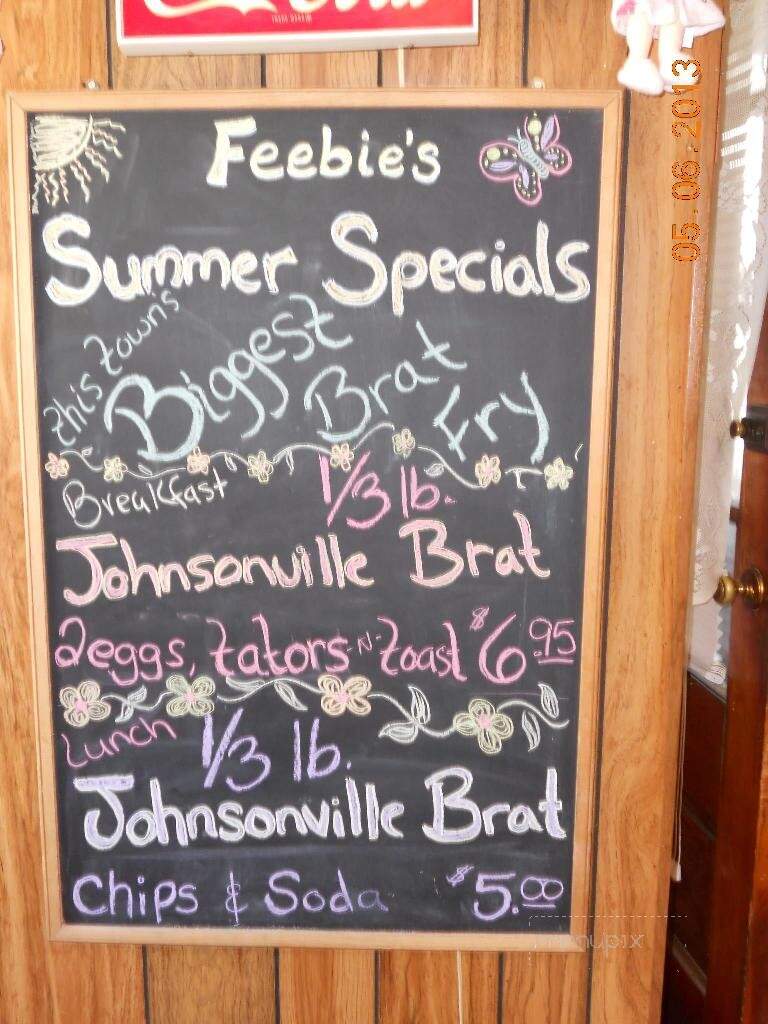 TRADE MARK ®
05.06.2013
Feebie's
Summer Specials
this town's
Biggest
Brat
Fry
Breakfast
1/3 lb.
Johnsonville Brat
2 eggs, tators -N- toast $6.95
Lunch
1/3 lb.
Johnsonville Brat
Chips & Soda $5.00